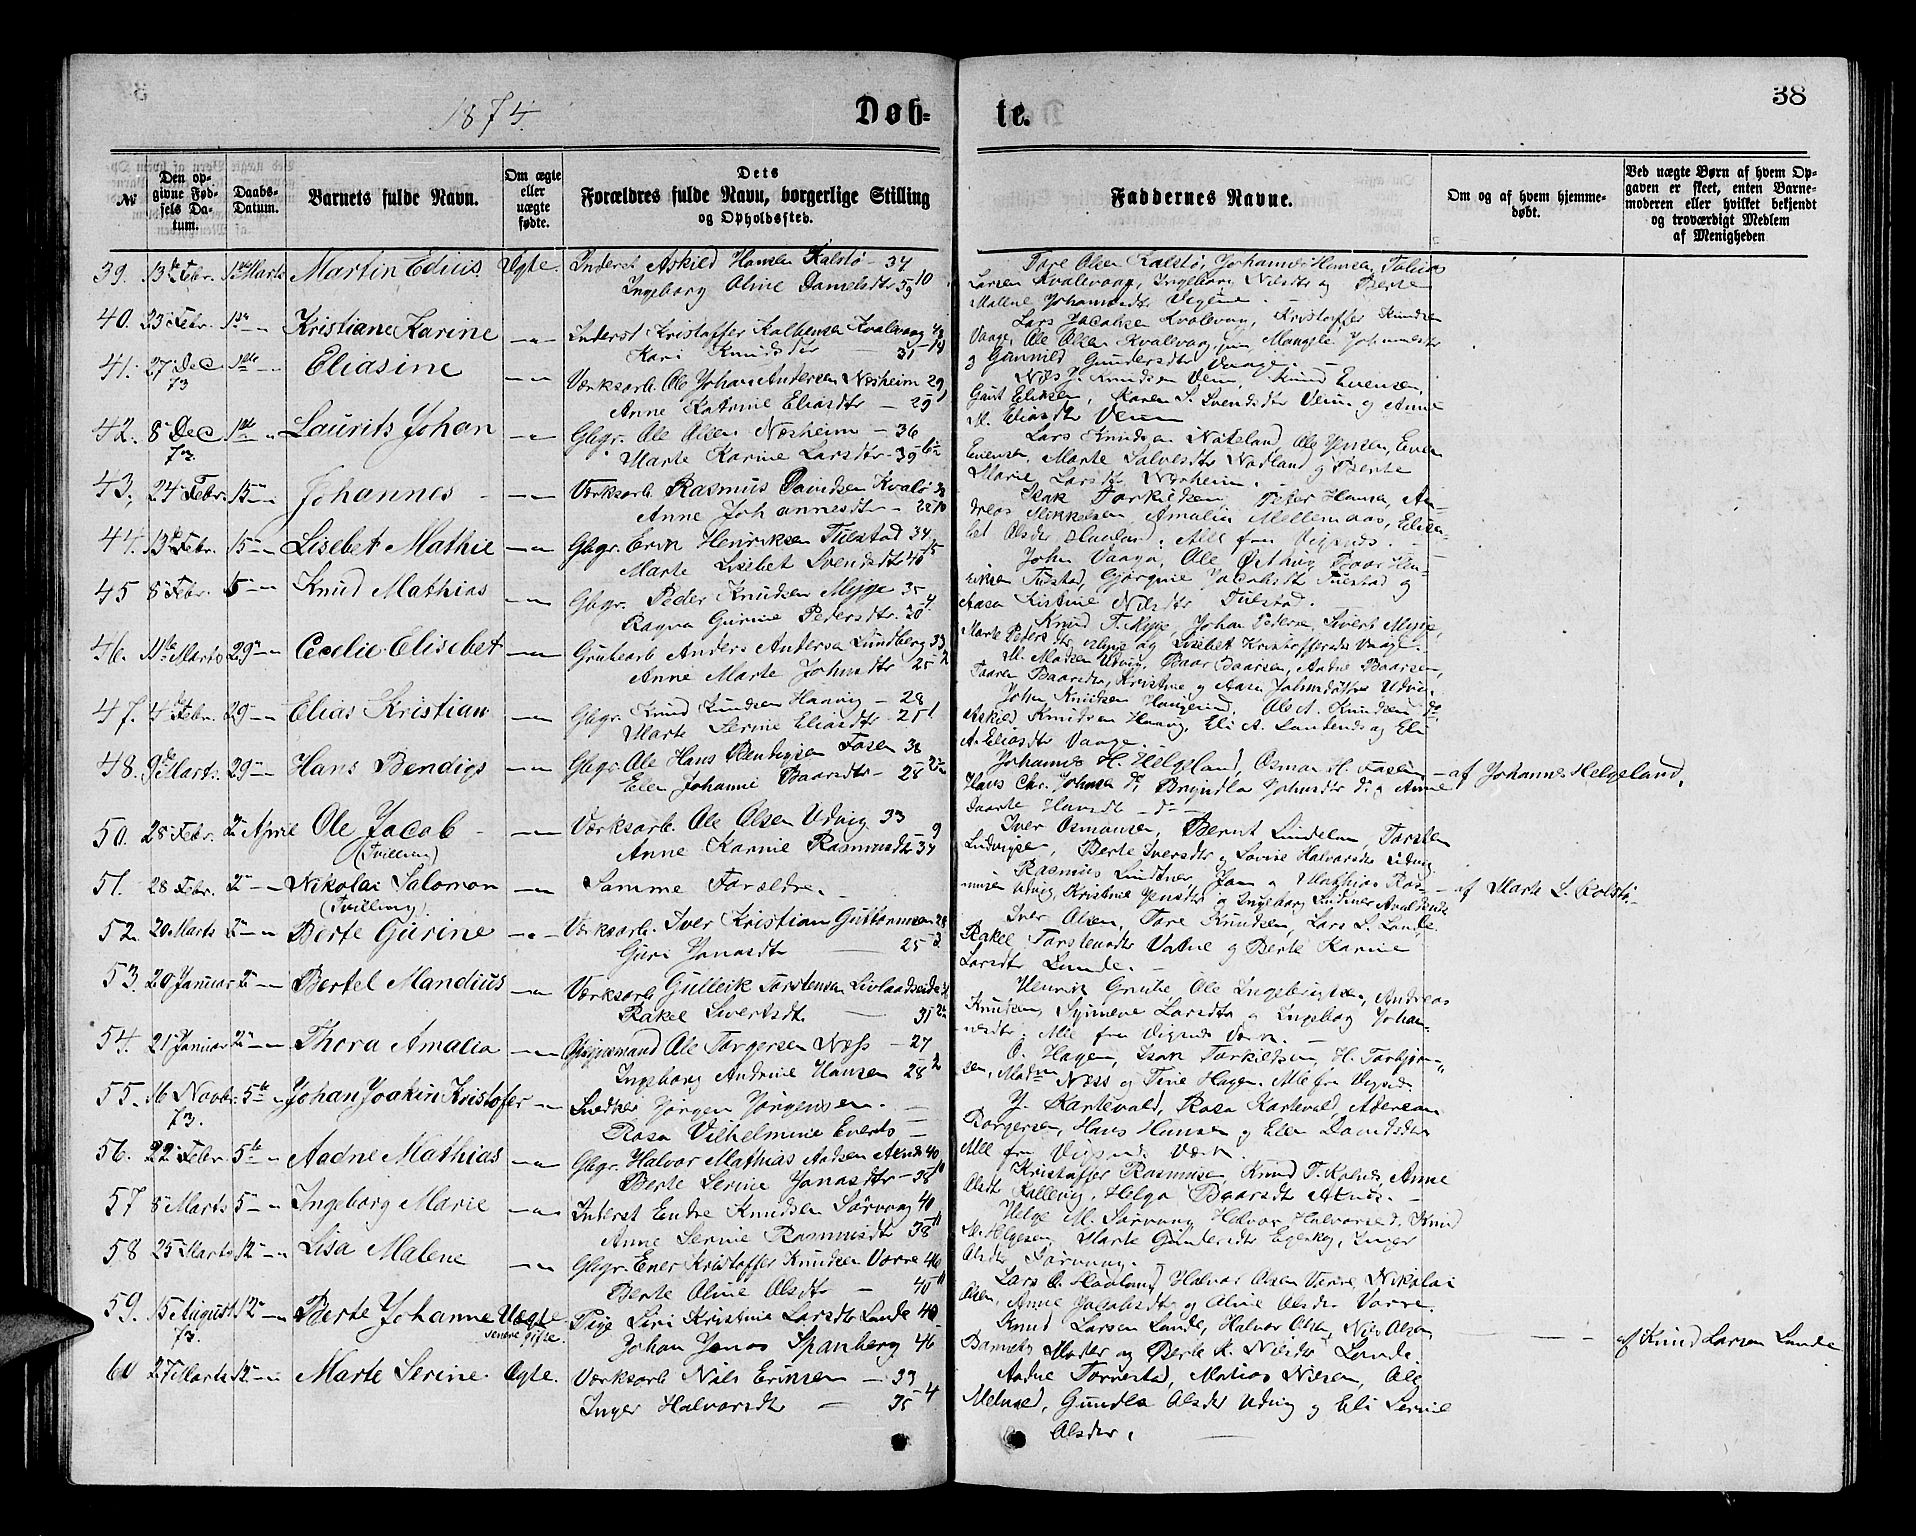 1874.
Døb-
te.
38
№
Den op-
givne Fød-
sels Da-
tum.
Daabs-
Datum.
Barnets fulde Navn.
Om ægte
eller
uægte
fødte.
Dets
Forældres fulde Navn, borgerlige Stilling
og Opholdssted.
Faddernes Navne.
Om og af hvem hjemme-
døbt.
Ved uægte Børn af hvem Op-
gaven er skeet, enten Barne-
moderen eller hvilket bekjendt
og troværdigt Medlem
af Menigheden
39. 13de Febr. 1ste Marts Martin Edius Ægte. Inderst Askild Hansen Kalstø - 34
Ingeborg Oline Danielsdtr 39 10
Tore Olsen Kalstø, Johannes Hansen, Tobias
Larsen Kvalevaag, Ingeborg Nilsdtr og Berte
Malene Johannesdtr
40. 23 Febr. 1ste - Kristiane Karine - " - Inderst Kristoffer Kvalvaag
Kari Knudsdtr 31
Lars Jacobsen Kvalevaag, Kristoffer Knudsen
Vaage, Ole Olsen Kvalevaag, Johannesdtr
og Gunnild Gundersdtr Vaage.
41. 27 Dec 73 1ste - Eliasine - " - Værksarb. Ole Johan Andersen Nesheim 29
Anne Katrine Eliasdtr - 29
Knudsen Veim, Knud Evensen,
Gurt Eliksen, Karen S. Svendsdtr Veim og Anne
M. Eliasdtr Veim
42. 8 Dec 73. 1ste " Laurits Johan - " - Gbgr. Ole Olsen Nesheim - 36
Marte Karine Larsdtr - 39
Lars Knudsen Nökeland, Ole Jensen, Even
Evensen, Marte Salvesdtr Nodland og Berte
Marie Larsdtr Nesheim.
43. 24 Febr. 15 - Johannes - " - Værksarb. Rasmus Davidsen Kvalø
Anne Johannesdtr - 22
Isak Torkildsen, Peter Hansen, An-
dreas Mikkelsen, Amalia Mellemaas, Elisa-
bet Olsdtr Havland. Alle fra Vigsnes.
44. 13de Febr. 15 - " Lisebet Mathie - " - Gbgr. Erik Henriksen Tuestad 34
Marte Lisebet Svendsdtr 40
John Vaage, Ole Østhus, Baar Hen-
riksen Tuestad, Gjørgine Jacobsdtr Tuestad og
Aasa Kistine Nilsdtr Tuestad.
45 8 Febr. 15 - " Knud Mathias - " - Gbgr. Peder Knudsen Myge 35
Ragna Gurine Pedersdtr. 30
Knud T. Myge, Johan Pedersen, Sivert Myge,
Marte Pedersdtr Myge og Lisebet Kristoffersdtr Vaage.
46. 11te Marts 29 - " Cecelie Elisebet - " - Grubearb. Anders Andersen Lundberg 33
Anne Marte Johnsdtr 25
M. Madsen Udvig, Baar Baarsen, Aadne Baarsen,
Taaren Baarsdtr, Kristine og Aasa Johnsdøtre Udvig.
47. 4 Febr. 29 - " Elias Kristian - " - Gbgr. Knud Knudsen Haavig - 28
Marte Serine Eliasdtr - 25
John Knudsen Haugeland, Ole A. Knudsen do,
Askild Knudsen Haavig, Eli A. Lunde og Eli
A. Eliasdtr Vaage.
48. 9de Marts. 29 - " Hans Bendigs - " - Gbgr. Ole Hans Bendigsen Fosen 38
Elen Johanne Baarsdtr - 28
Johannes H. Helgeland, Osmon H. Fosen,
Hans Chr. Johnsen do, Bryndla Johnsdtr do og Anne
Daarte Hansdtr - do -
af Johannes Helgeland.
50. 28 Febr. 2 April Ole Jacob (Tvilling) - " - Værksarb. Ole Olsen Udvig 33
Anne Karine Rasmusdtr 34
Iver Osmonsen, Bernt Lindelien, Torsten
Ludvigsen, Berte Iversdtr og Lovise Halvorsdtr Udvig
51. 28 Febr. 2 - " Nikolai Salomon (Tvilling). - " - Samme Forældre.
Rasmus Lindtner, Jon og Mathias Ras-
musen Udvig, Kristine Jensdtr og Ingeborg Lindtner
af Marte L. Kolstø.
52. 20 Marts 2 - " Berte Gurine - " - Værksarb. Iver Kristian Guttormsen 28
Guri Jonasdtr - 25
Iver Olsen, Tore Knudsen, Lars L. Lunde,
Rakel Torstensdtr Vatne og Berte Karine
Larsdtr Lunde.
53. 20 Januar 2 - " Bertel Mandius - " - Værksarb Gulleik Torstensen
Rakel Sivertsdt - 31
Henrik Grude, Ole Ingebrigtsen, Andreas
Knudsen, Synneve Larsdtr og Ingeborg Johan-
nesdtr. Alle fra Vigsnes Værk.
54. 21 Januar 2 - " Thora Amalia - " - Ole Torgersen Næss - 27
Ingeborg Andrine Hansen 28
O. Hagen, Isak Torkildsen, H. Torbjørn-
sen, Madm Næss og Tine Hagen. Alle fra Vigsnes
55. 16 Novbr. 73. 5te " Johan Joakin Kristofer - " - Snedker Jørgen Jørgensen. -
Rosa Vilhelmine Everts -
J. Kartevold, Rosa Kartevold, Adersen
Borgersen, Hans Hansen og Elen Davidsdtr
Alle fra Vigsnes Værk.
56. 22 Febr. 5te - " Aadne Mathias - " - Gbgr. Halvor Mathias Aadsen Aknes 40
Berte Serine Jonasdtr - 38
Kristoffer Rasmusen, Knud T. Kolnes, Anne
Olsdtr Kallevig, Helga Baarsdtr Aknes.
57 8 Marts 5 - " Ingeborg Marie - " - Inderst Endre Knudsen Sørvaag 40
Anne Serine Rasmusdtr 38
Helge M. Sørvaag, Halvor Halvorsen do. Knud
M. Helgesen, Marte Gundersdtr Egerkog, Inger
Olsdtr Sørvaag.
58 25 Marts 12 - " Lisa Malene - " - Gbgr. Ener Kristoffer Knudsen Vorre 46
Berte Oline Olsdtr - 40
Lars O. Havland, Halvor Olsen Vorre, Nikolai
Olsen, Anne Jacobsdtr og Oline Olsdtr Vorre.
59. 15 August 73. 12 - " Berte Johanne Uægte. senere gifte. Pige Siri Kristine Larsdtr Lunde 40
Johan Jonas Spanberg 46
Knud Larsen Lunde, Halvor Olsen, Nils Olsen
Moder og Berte K. Nilsdtr Lunde.
af Knud Larsen Lunde
60 27 Marts 12 - " Marte Serine. Ægte. Værksarb Nils Eriksen - 33
Inger Halvorsdtr - 35 4
Aadne Torrestad, Matias Nilsen, Ole
Melnæs, Gundla Olsdtr Udvig og Eli Serine
Olsdtr.